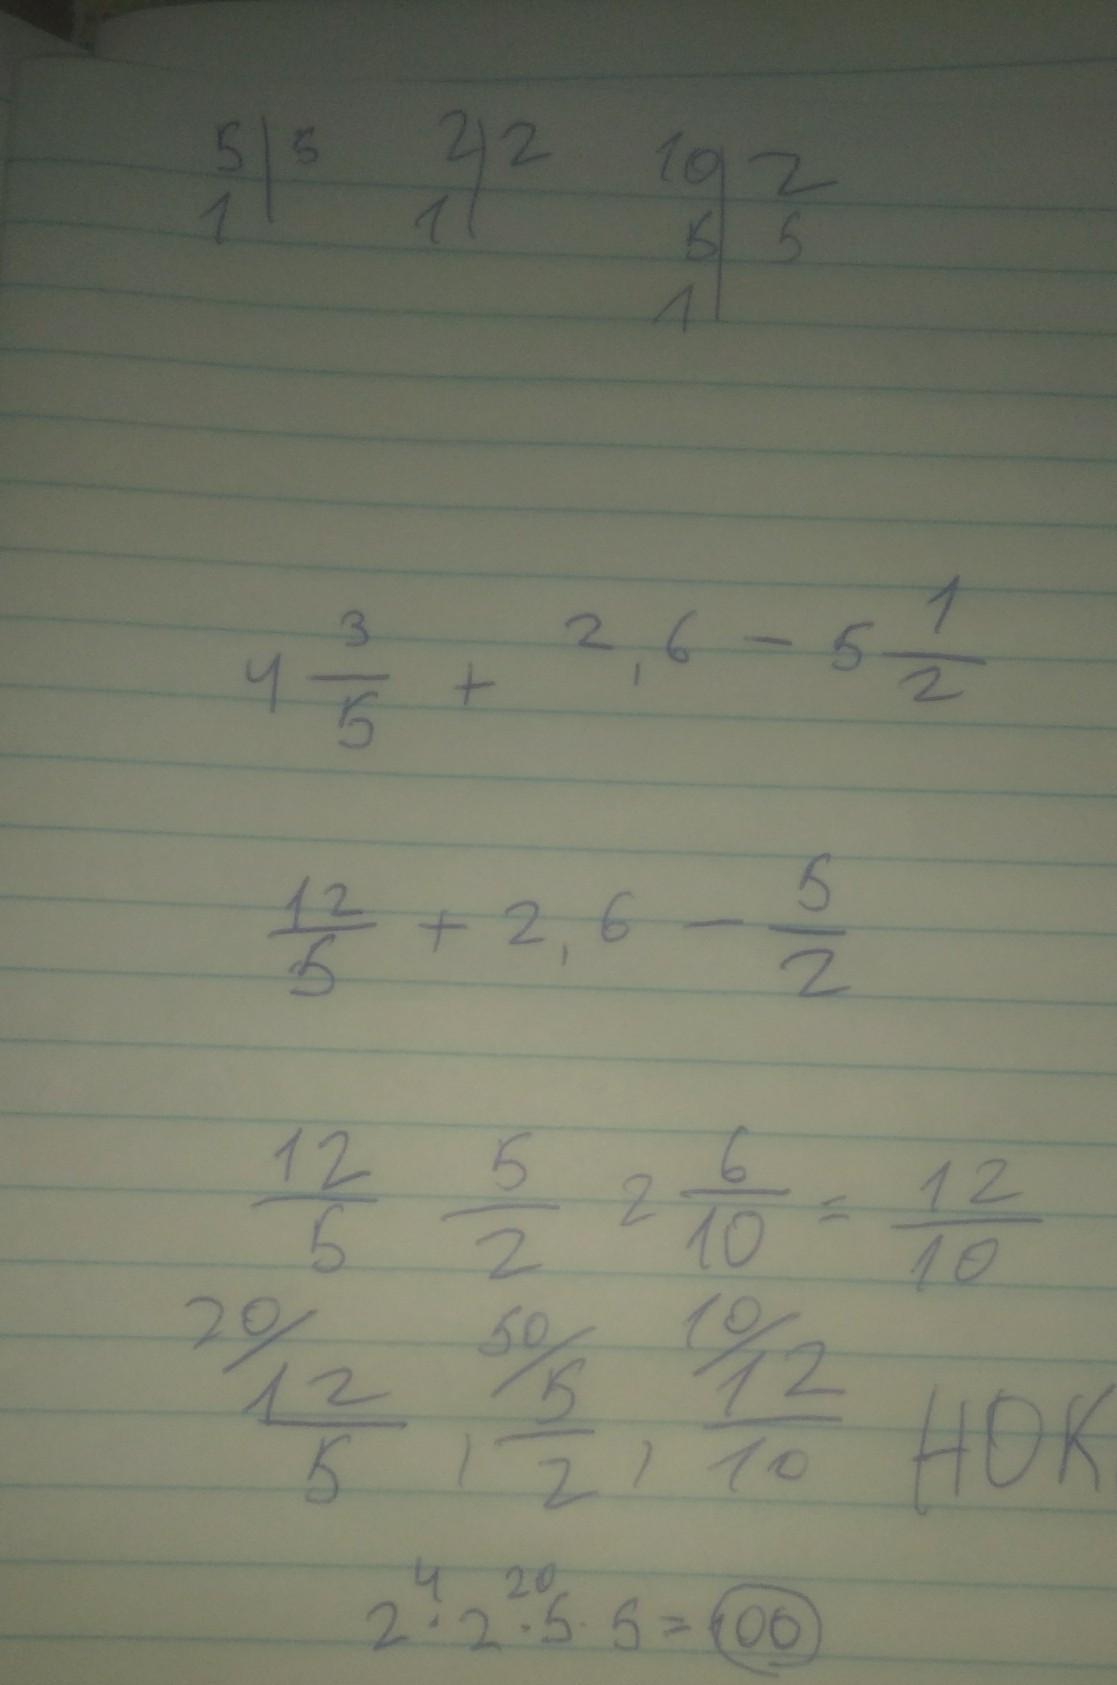 5 | 5   2 | 2   10 | 2
1 |   1 |   5 | 5
1 |
4 3/5 + 2,6 - 5 1/2
12/5 + 2,6 - 5/2
12/5   5/2   2 6/10 = 12/10
20/ 12/5 , 50/ 5/2 , 10/ 12/10   НОК
4 20
2 · 2 · 5 · 5 = 100